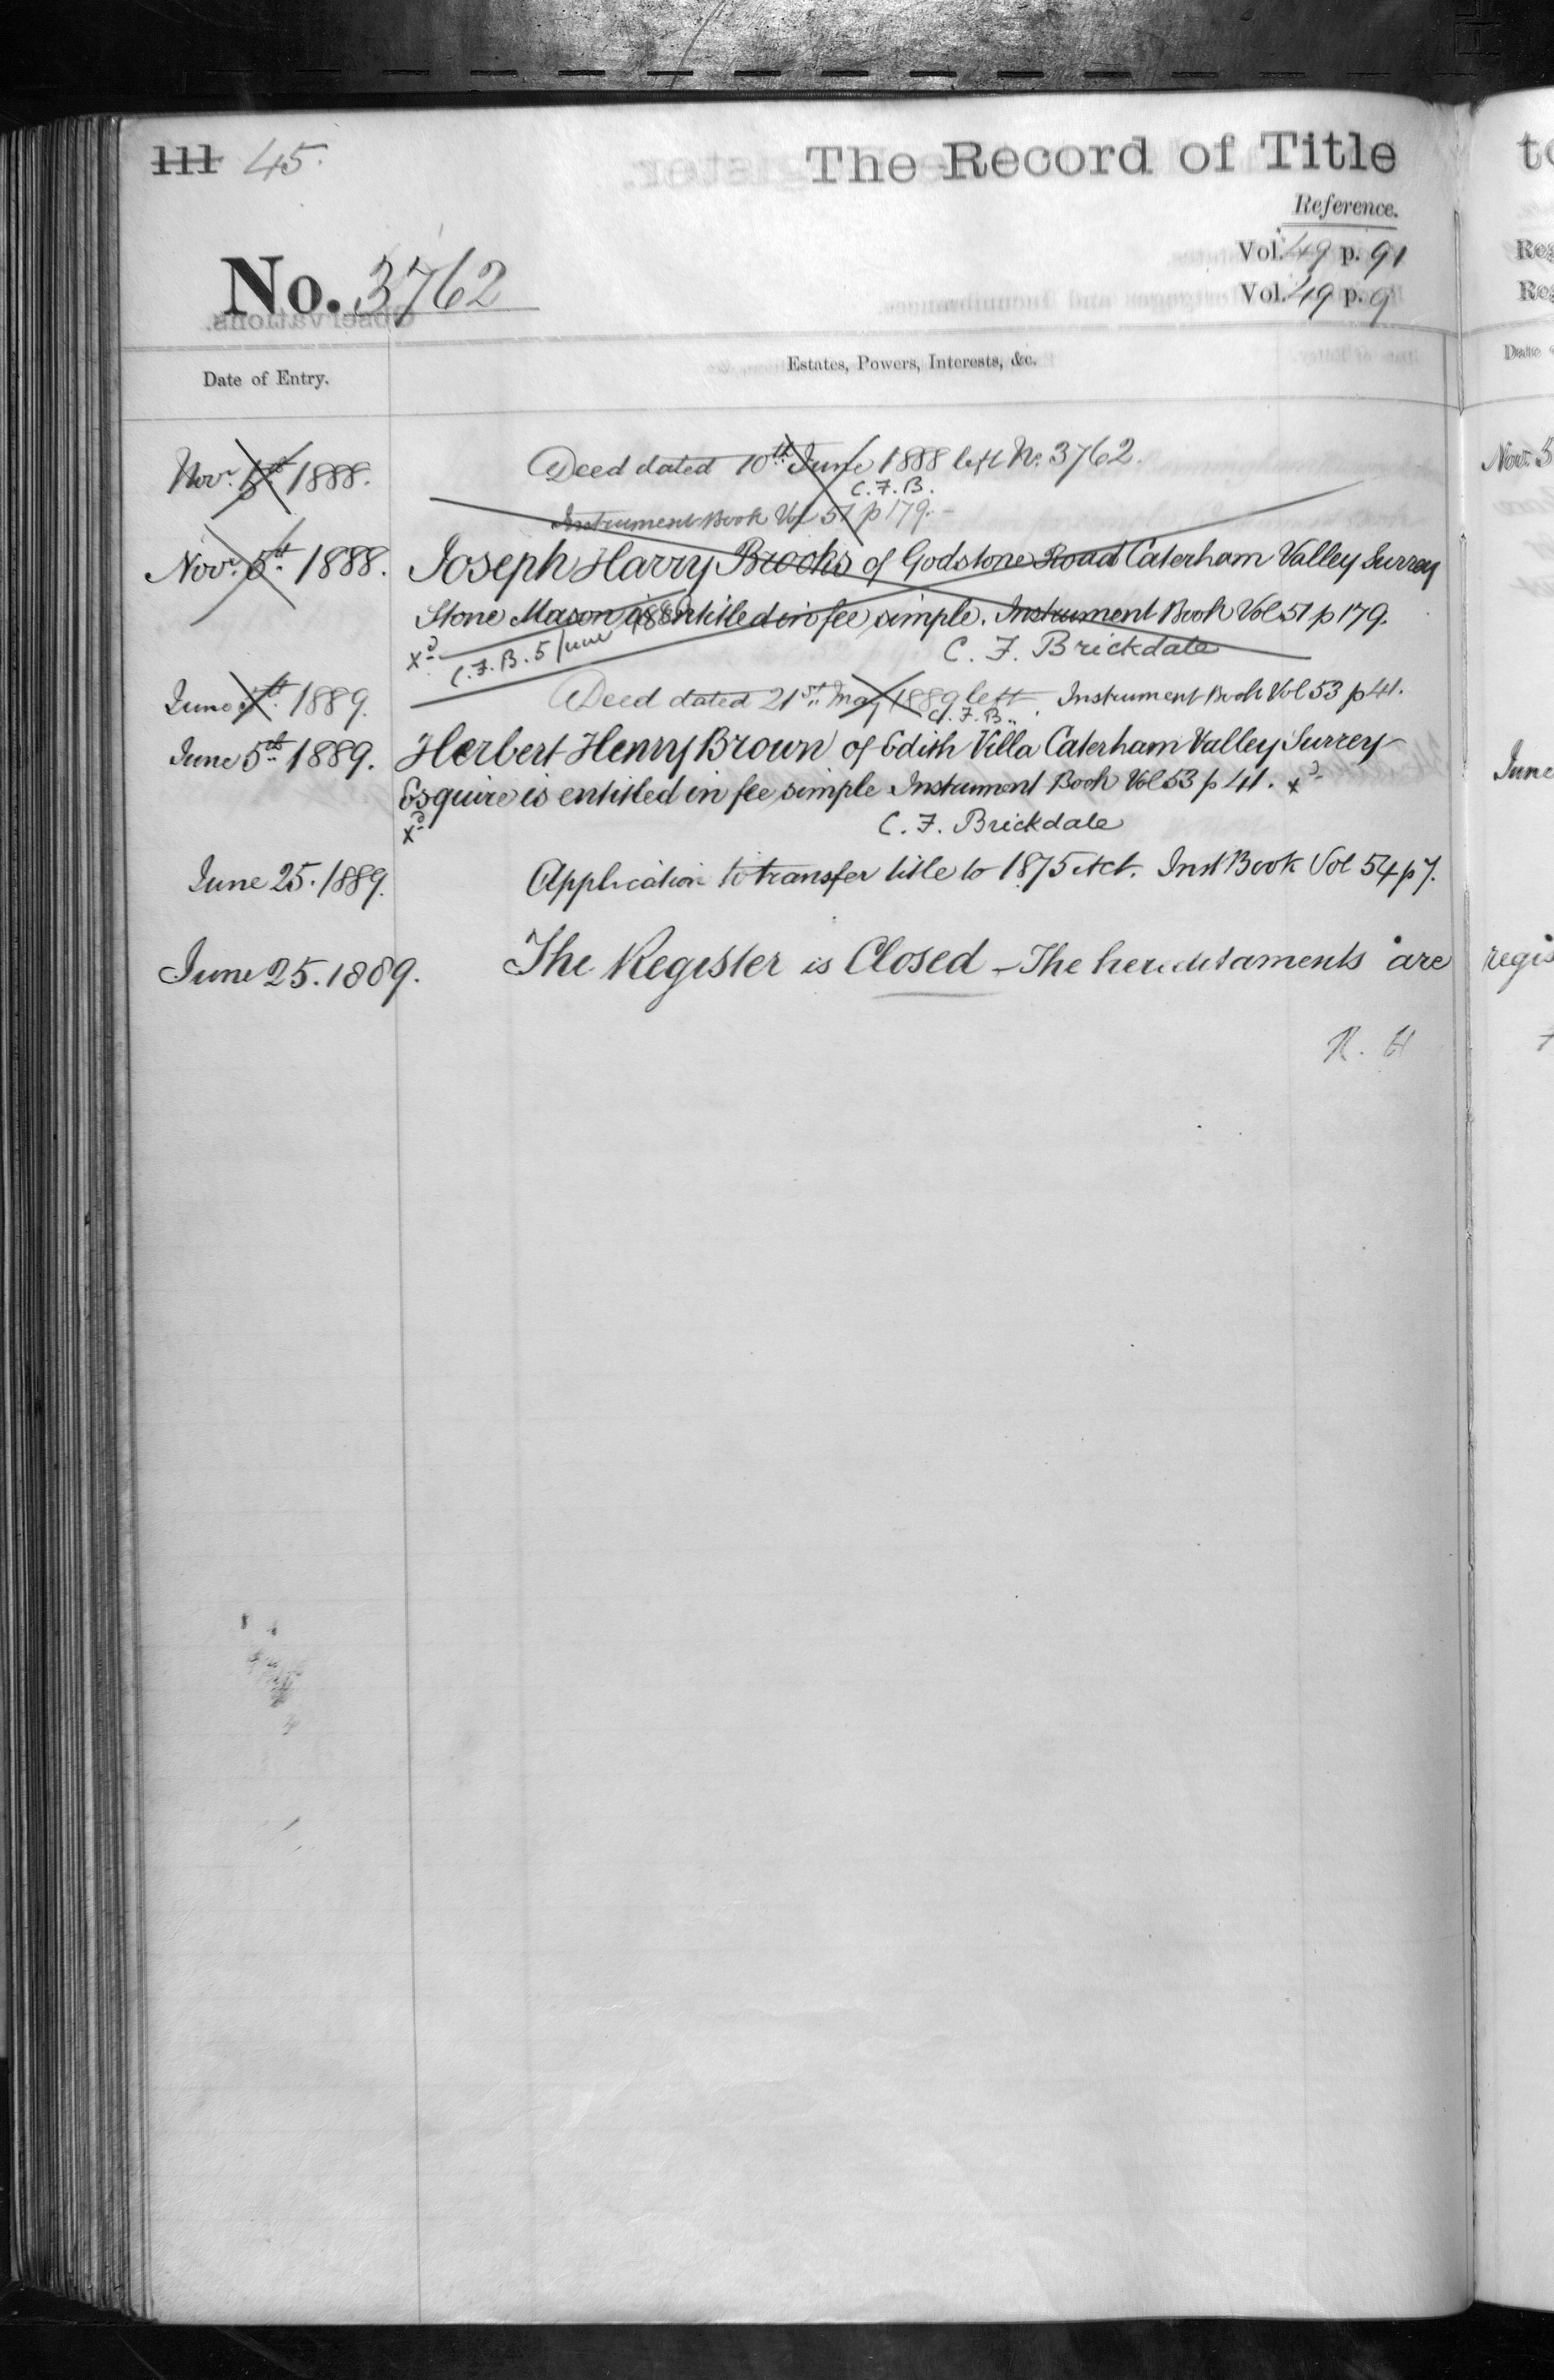 111 45.
The Record of Title
Reference.
Vol. 49 p. 91
No. 3762
Vol. 49 p. 9
Date of Entry.
Estates, Powers, Interests, &c.
Novr. 1888.
Deed dated 10th June 1888 left No. 3762.
C. F. B.
Instrument Book Vol 51 p 179.
Novr. 5th 1888.
Joseph Harry Brooks of Godstone Road Caterham Valley Surrey
Stone Mason is entitled in fee simple. Instrument Book Vol 51 p 179.
xd C. F. B. 5 June 1889
C. F. Brickdale
June 5th 1889.
Deed dated 21st May 1889 left. Instrument Book Vol 53 p 41.
C. F. B.
June 5th 1889.
Herbert Henry Brown of Edith Villa Caterham Valley Surrey
Esquire is entitled in fee simple Instrument Book Vol 53 p 41. xd
xd
C. F. Brickdale
June 25. 1889.
Application to transfer title to 1875 Act. Inst Book Vol 54 p 7.
June 25. 1889.
The Register is Closed - The hereditaments are regis
R. H